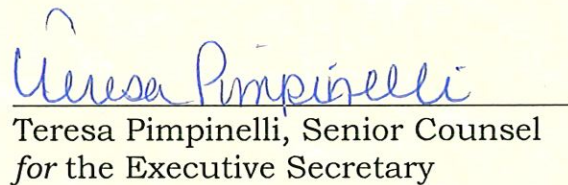 Teresa Pimpinelli
Teresa Pimpinelli, Senior Counsel
for the Executive Secretary